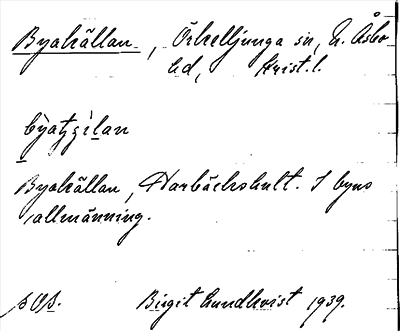 Byakällan, Örkelljunga sn, N. Åsbo
hd, Krist. l.
Byakällan, Harbäckshult. I byns
allmänning.
Birgit Lundkvist 1939.